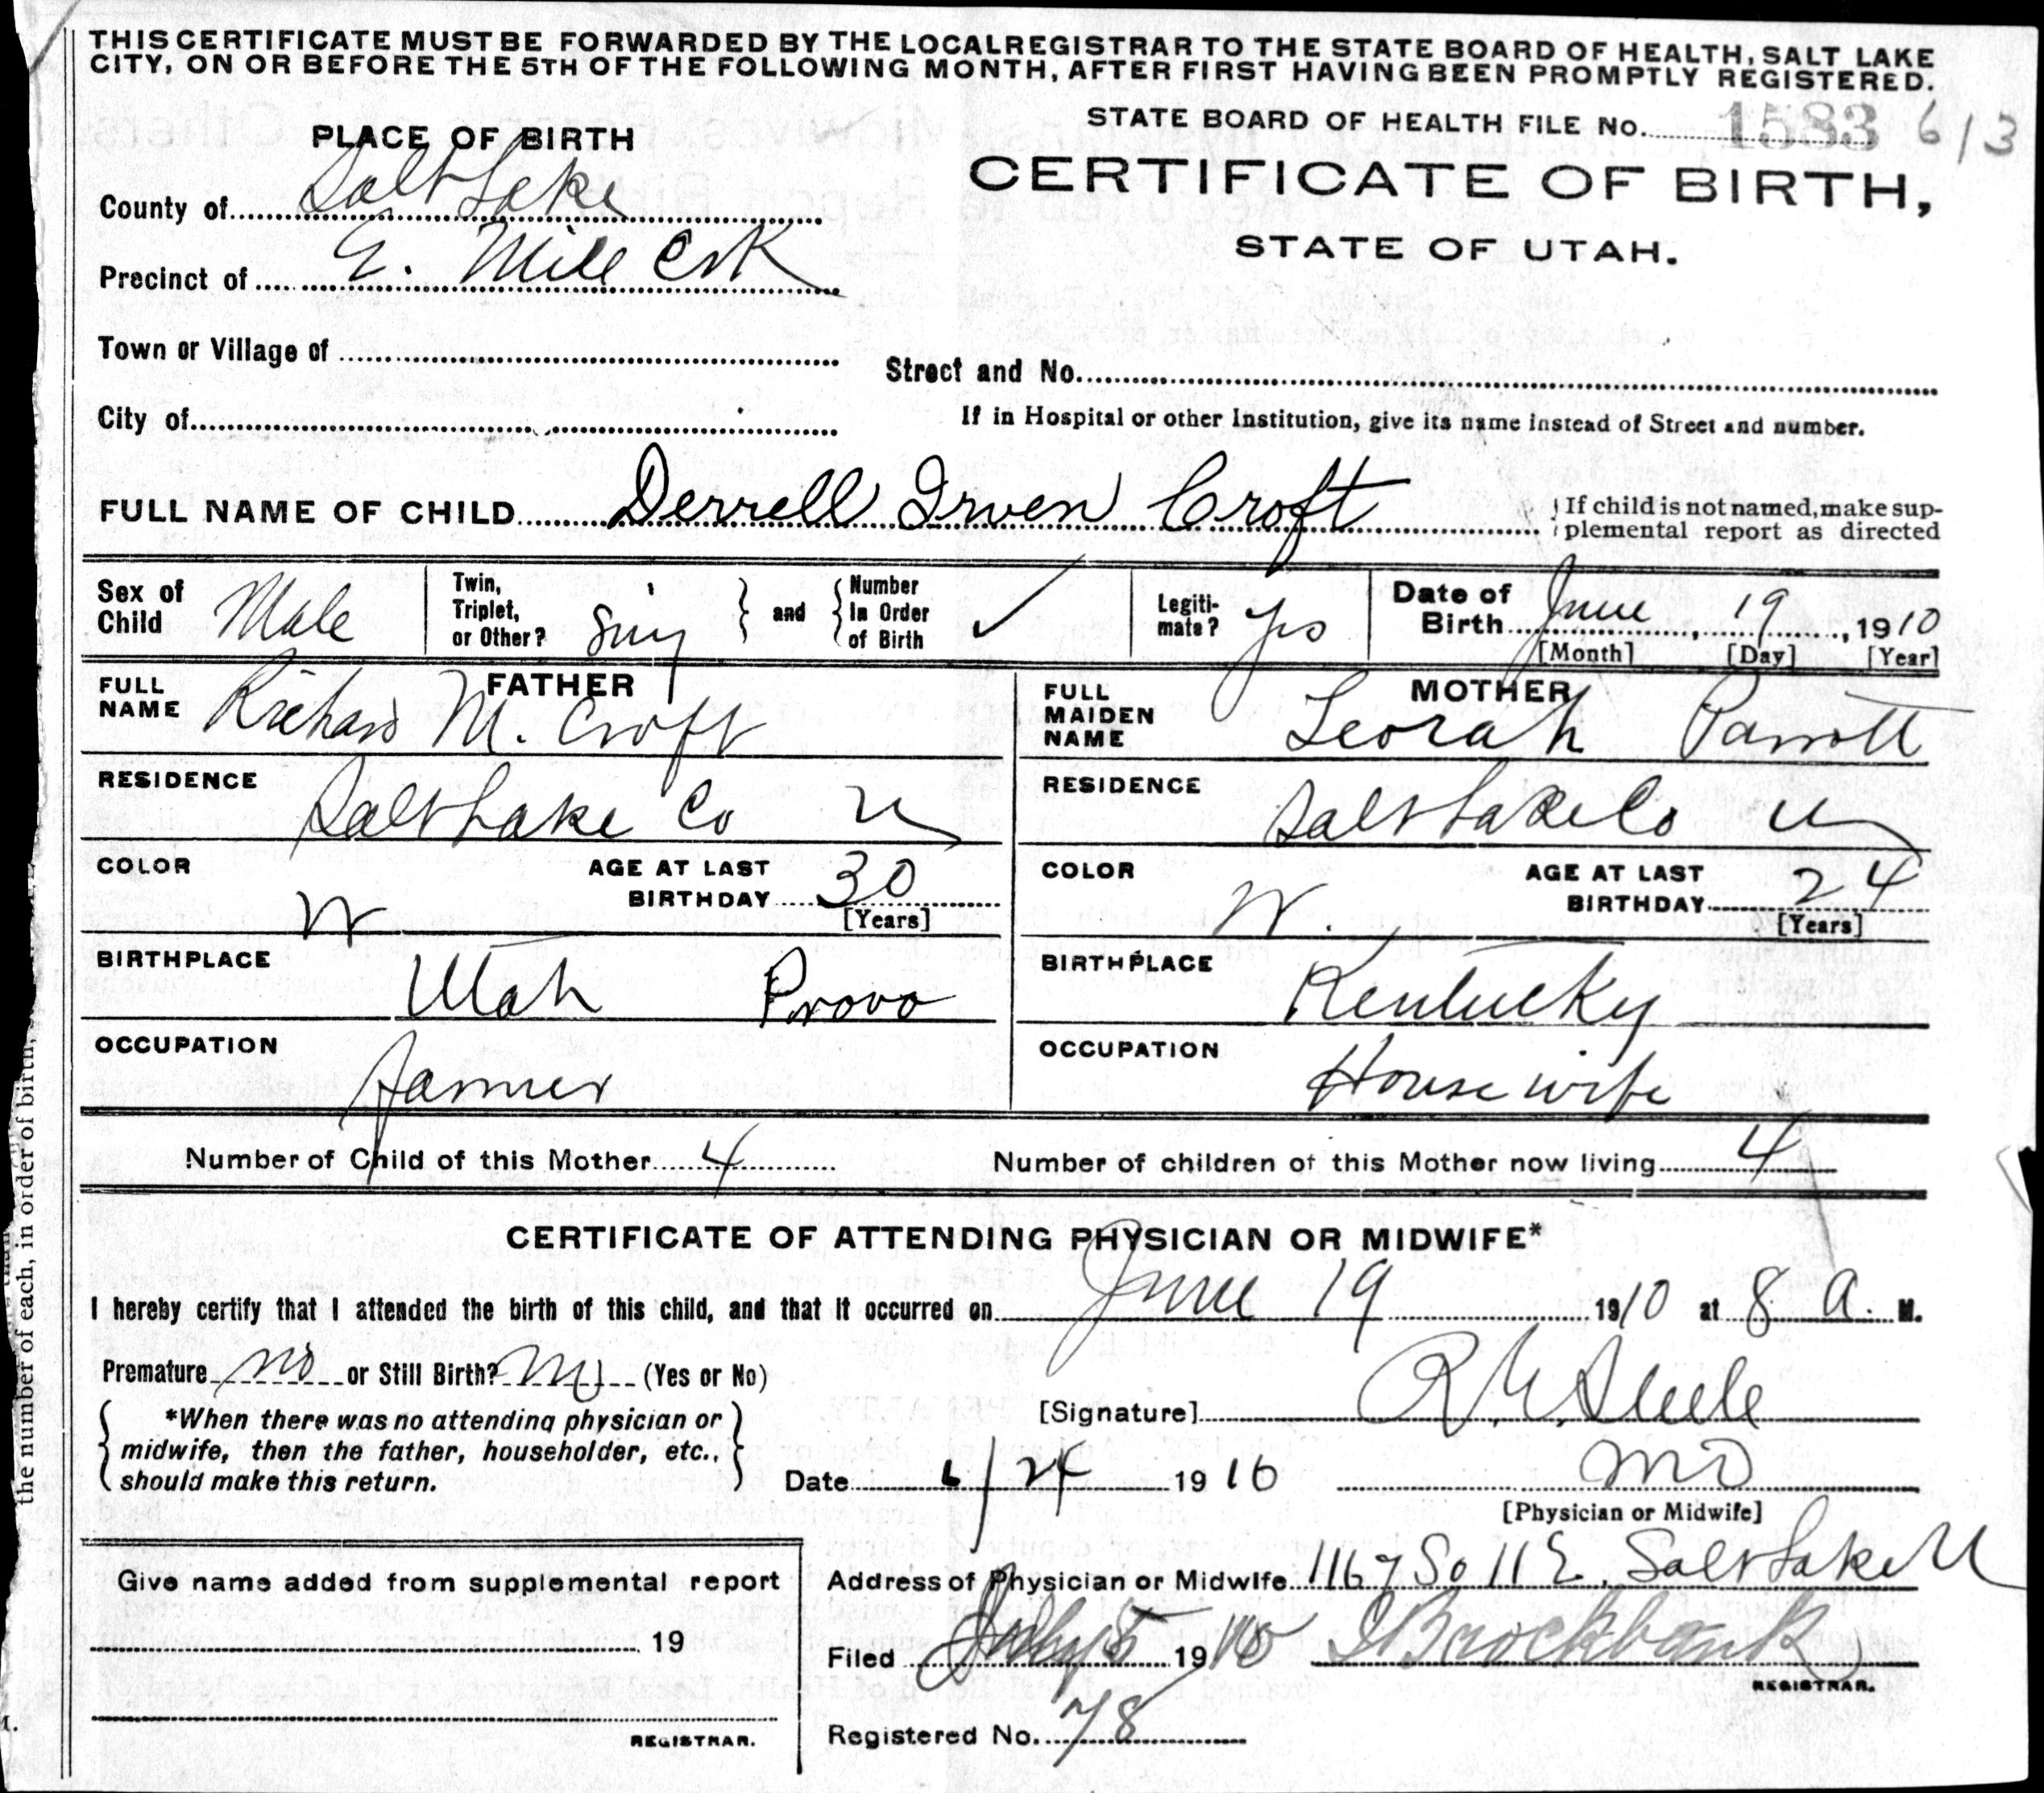 THIS CERTIFICATE MUST BE FORWARDED BY THE LOCAL REGISTRAR TO THE STATE BOARD OF HEALTH, SALT LAKE
CITY, ON OR BEFORE THE 5TH OF THE FOLLOWING MONTH, AFTER FIRST HAVING BEEN PROMPTLY REGISTERED.
STATE BOARD OF HEALTH FILE No. 1583 613
PLACE OF BIRTH
CERTIFICATE OF BIRTH,
County of Salt Lake
STATE OF UTAH.
Precinct of E. Mill Crk
Town or Village of
Street and No.
City of
If in Hospital or other Institution, give its name instead of Street and number.
FULL NAME OF CHILD Derrell Irven Croft
If child is not named, make sup-
plemental report as directed
Sex of Child Male
Twin, Triplet, or Other? Sing
and
Number In Order of Birth ✓
Legiti-mate? Yes
Date of Birth June, 19, 1910
[Month] [Day] [Year]
FATHER
FULL NAME Richard M. Croft
MOTHER
FULL MAIDEN NAME Leorah Parrott
RESIDENCE Salt Lake Co U
RESIDENCE Salt Lake Co U
COLOR W
AGE AT LAST BIRTHDAY 30
[Years]
COLOR W.
AGE AT LAST BIRTHDAY 24
[Years]
BIRTHPLACE Utah Provo
BIRTHPLACE Kentucky
OCCUPATION Farmer
OCCUPATION House wife
Number of Child of this Mother 4
Number of children of this Mother now living 4
CERTIFICATE OF ATTENDING PHYSICIAN OR MIDWIFE*
I hereby certify that I attended the birth of this child, and that it occurred on June 19 1910 at 8 a. M.
Premature no or Still Birth? no (Yes or No)
*When there was no attending physician or
midwife, then the father, householder, etc.,
should make this return.
[Signature] Steele
Date 6/24 1910
MD
[Physician or Midwife]
Give name added from supplemental report
19
REGISTRAR.
Address of Physician or Midwife 1167 So 11 E. Salt Lake U
Filed July 5 1910 Brockbank
REGISTRAR.
Registered No. 78
the number of each, in order of birth,